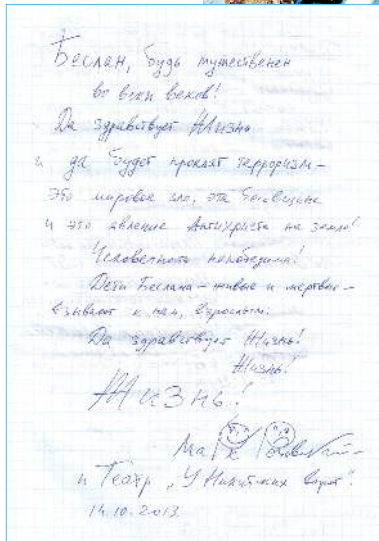 Беслан, будь мужественен
во веки веков!
Да здравствует Жизнь
и да будет проклят терроризм –
это мировое зло, эта бесовщина
и это явление Антихриста на земле!
Человечность непобедима!
Дети Беслана – живые и мертвые –
взывают к нам, взрослым:
Да здравствует Жизнь!
Жизнь!
Жизнь!
Марк Розовский
и Театр „У Никитских ворот".
14.10.2013